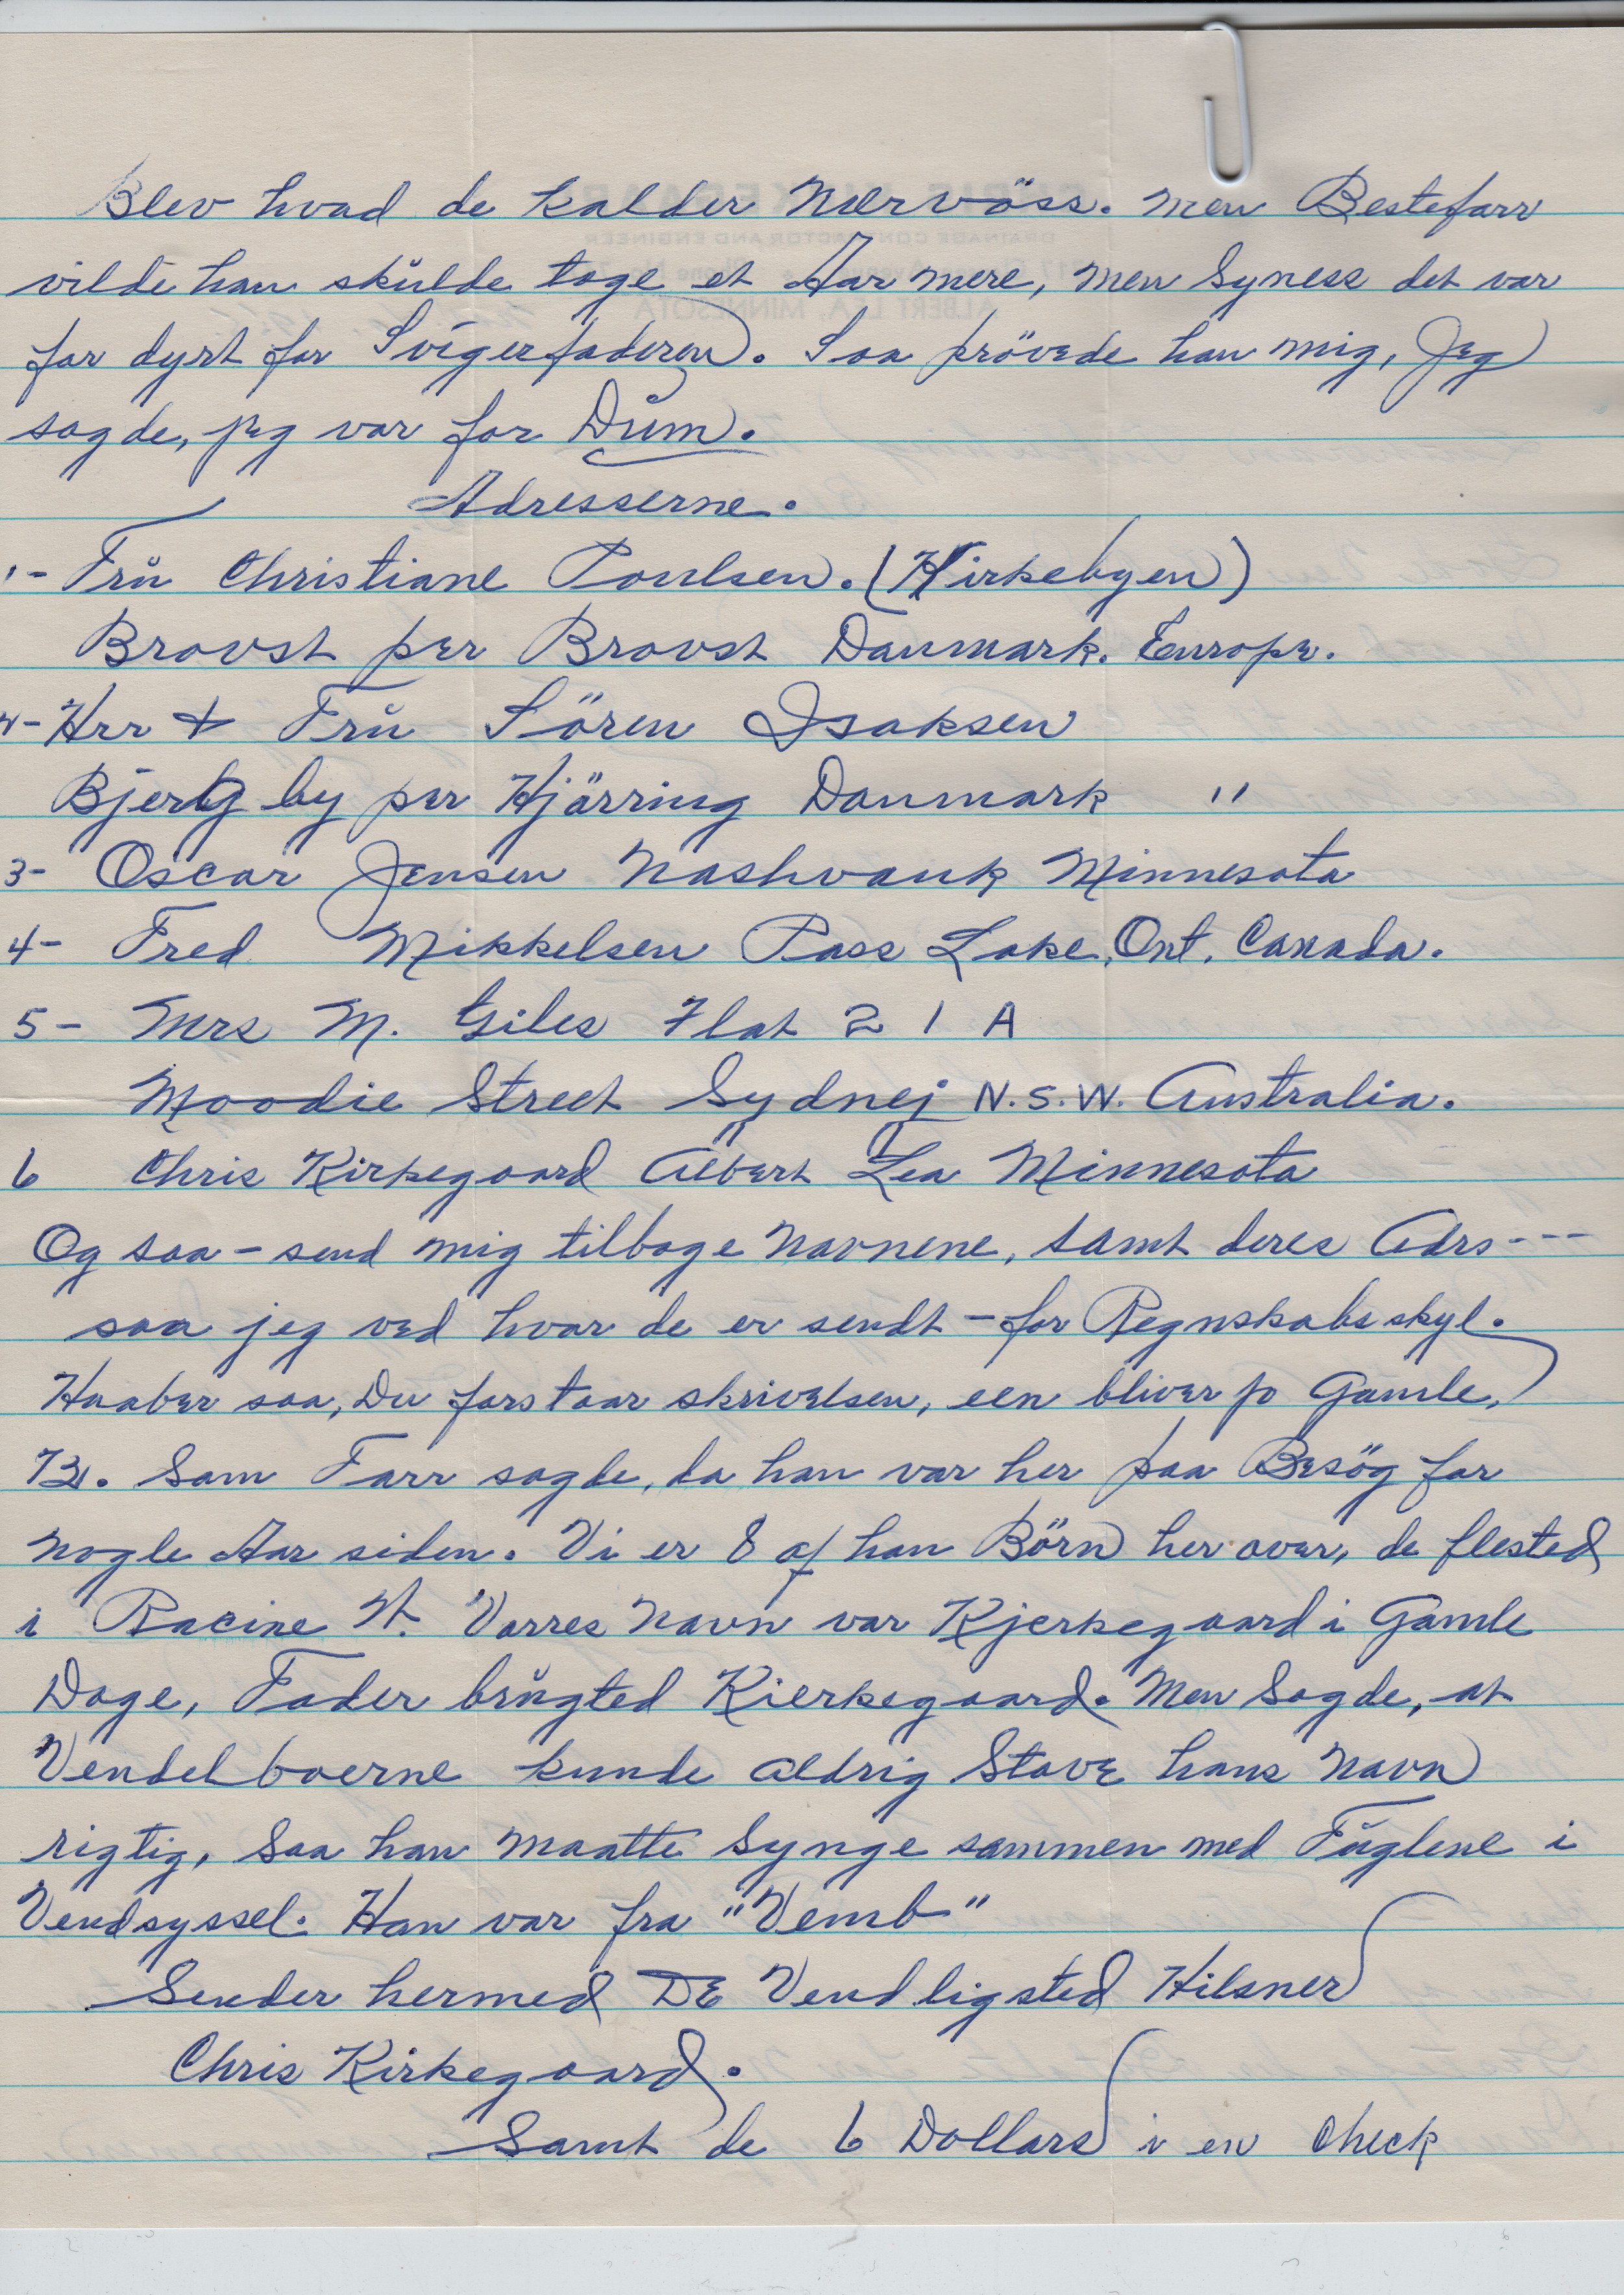 Blev hvad de kalder Nærvöss. Men Bestefarr
vilde han skůlde tage et Aar mere, men Syness det var
for dyrt for Svigerfaderen. Saa prövede han mig, Jeg
sagde, jeg var for Dům.
Adresserne.
1- Frů Christiane Poulsen. (Kirkebyen)
Brovst per Brovst Danmark. Europe.
2- Hrr & Frů Sören Isaksen
Bjergby per Hjörring Danmark "
3- Oscar Jensen Nashvauk Minnesota
4- Fred Mikkelsen Pass Lake, Ont. Canada.
5- Mrs M. Giles Flat 2 1 A
Moodie Street Sydnej N.S.W. Australia.
6 Chris Kirkegaard Albert Lea Minnesota
Og saa - send mig tilbage Navnene, samt deres Adrs---
saa jeg ved hvor de er sendt - for Regnskabs skyl.
Haaber saa, Du forstaar skrivelsen, een bliver jo Gamle,
73. Som Farr sagde, da han var her paa Besög for
nogle Aar siden. Vi er 8 af han Börn her over, de flested
i Racine W. Vorres Navn var Kjerkegaard i Gamle
Dage, Fader brůgted Kierkegaard. Men Sagde, at
Vendelboerne kunde aldrig Stave hans Navn
rigtig, Saa han maatte Synge sammen med Fůglene i
Vendsyssel. Han var fra "Vemb"
Sender hermed DE Vendligsted Hilsner
Chris Kirkegaard.
Samt de 6 Dollars i en Check